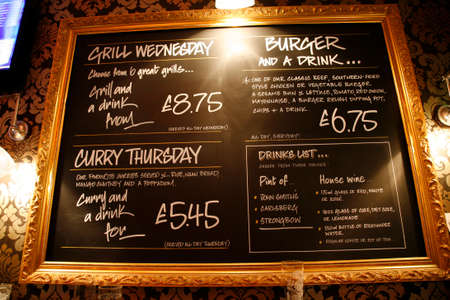 GRILL WEDNESDAY
Choose from 6 great grills...
Grill and
a drink
from
£8.75
(SERVED ALL DAY WEDNESDAY)
CURRY THURSDAY
ONE FAVOURITE CURRIES SERVED W. RICE, NAAN BREAD,
MANGO CHUTNEY AND A POPPADUM.
Curry and
a drink
for
£5.45
(SERVED ALL DAY THURSDAY)
BURGER
AND A DRINK...
ONE OF OUR CLASSIC BEEF, SOUTHERN FRIED
STYLE CHICKEN OR VEGETABLE BURGER,
A SESAME BUN W. LETTUCE, TOMATO, RED ONION,
MAYONNAISE, A BURGER RELISH DIPPING POT,
CHIPS + A DRINK
£6.75
ALL DAY, EVERYDAY
DRINKS LIST...
CHOOSE FROM THESE DRINKS
Pint of...
• JOHN SMITHS
• CARLSBERG
• STRONGBOW
House wine
• 175ml GLASS OF RED, WHITE
OR ROSE.
GLASS OF COKE, DIET COKE,
OR LEMONADE
• 330ml BOTTLE OF
WATER.
• REGULAR COFFEE OR POT OF TEA